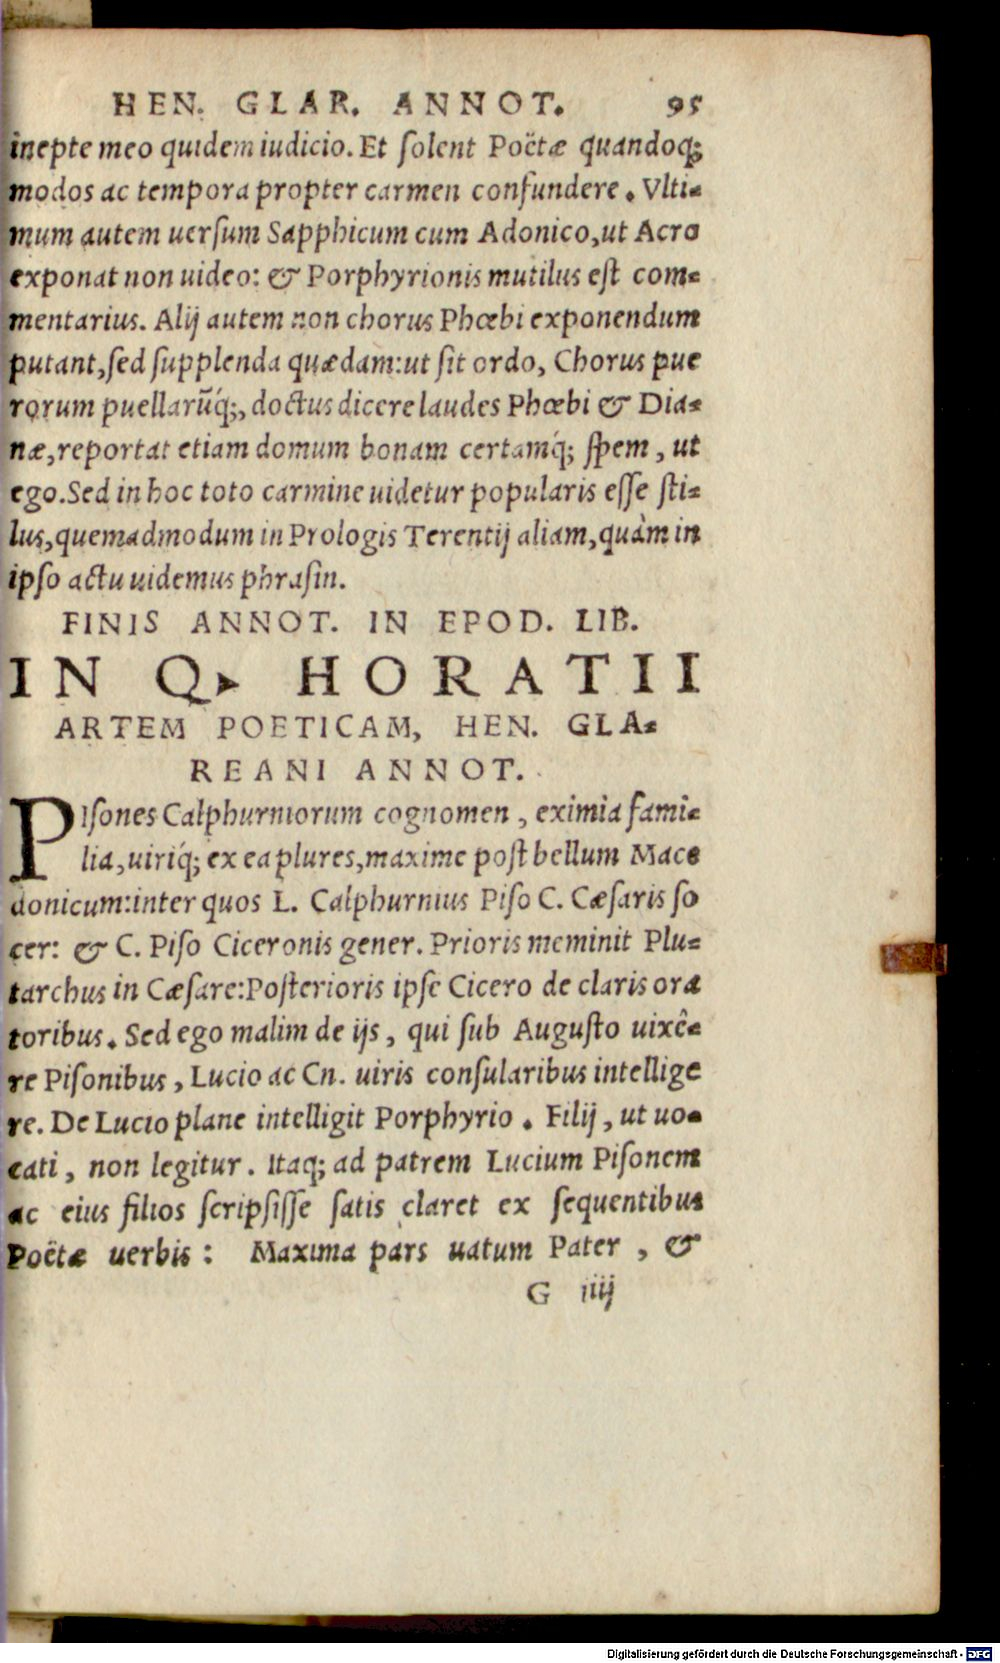 HEN. GLAR. ANNOT. 95
inepte meo quidem iudicio. Et ſolent Poëtæ quandoq;
modos ac tempora propter carmen confundere. Vlti-
mum autem uerſum Sapphicum cum Adonico, ut Acro
exponat non uideo: & Porphyrionis mutilus eſt com-
mentarius. Alij autem non chorus Phœbi exponendum
putant, ſed ſupplenda quædam: ut ſit ordo, Chorus pue
rorum puellarũq́;, doctus dicere laudes Phœbi & Dia-
næ, reportat etiam domum bonam certamq́; ſpem, ut
ego. Sed in hoc toto carmine uidetur popularis eſſe ſti-
lus, quemadmodum in Prologis Terentij aliam, quàm in
ipſo actu uidemus phraſin.
FINIS ANNOT. IN EPOD. LIB.
IN Q. HORATII
ARTEM POETICAM, HEN. GLA-
REANI ANNOT.
PIſones Calphurniorum cognomen, eximia fami-
lia, uiriq́; ex ea plures, maxime poſt bellum Mace
donicum: inter quos L. Calphurnius Piſo C. Cæſaris ſo
cer: & C. Piſo Ciceronis gener. Prioris meminit Plu-
tarchus in Cæſare: Poſterioris ipſe Cicero de claris ora
toribus. Sed ego malim de ijs, qui ſub Auguſto uixê-
re Piſonibus, Lucio ac Cn. uiris conſularibus intellige
re. De Lucio plane intelligit Porphyrio. Filij, ut uo-
cati, non legitur. Itaq; ad patrem Lucium Piſonem
ac eius filios ſcripſiſſe ſatis claret ex ſequentibus
Poëtæ uerbis: Maxima pars uatum Pater, &
G iiij
Digitalisierung gefördert durch die Deutsche Forschungsgemeinschaft - DFG